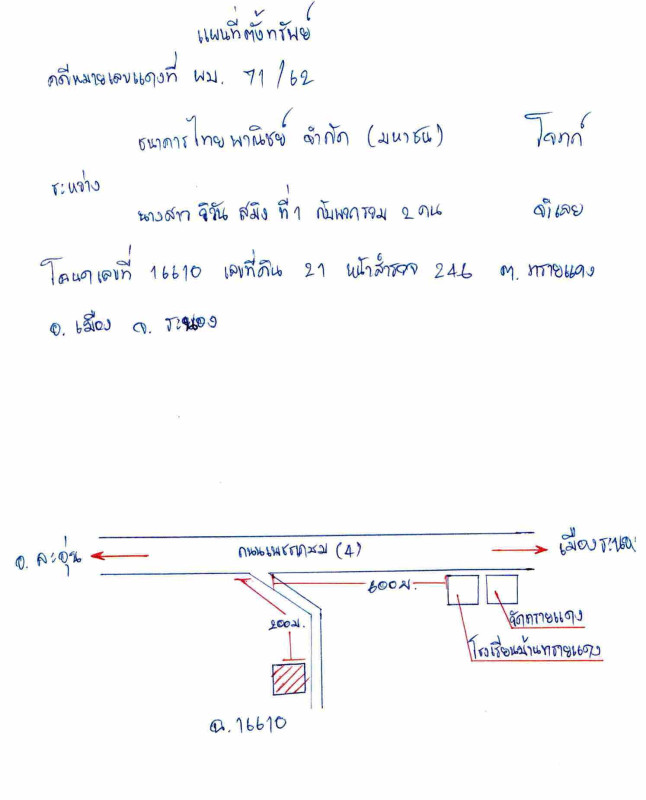 แผนที่ตั้งทรัพย์
คดีหมายเลขแดงที่ ผบ. 71/62
ธนาคารไทยพาณิชย์ จำกัด (มหาชน) โจทก์
ระหว่าง
นางสาว สมิง ที่ 1 กับพวกรวม 2 คน จำเลย
โฉนดเลขที่ 16610 เลขที่ดิน 21 หน้าสำรวจ 246 ต. ทรายแดง
อ. เมือง จ. ระนอง
ถนนเพชรเกษม (4)
อ. ละอุ่น
เมืองระนอง
600 ม.
200 ม.
วัดทรายแดง
โรงเรียนบ้านทรายแดง
ฉ. 16610